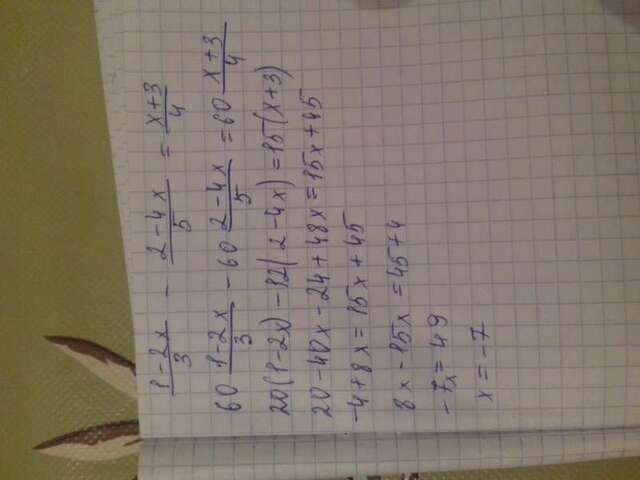 (1-2x)/3 - (2-4x)/5 = (x+3)/4
60 (1-2x)/3 - 60 (2-4x)/5 = 60 (x+3)/4
20(1-2x) - 12(2-4x) = 15(x+3)
20-40x-24+48x=15x+45
-4+8x=15x+45
8x-15x=45+4
-7x=49
x=-7